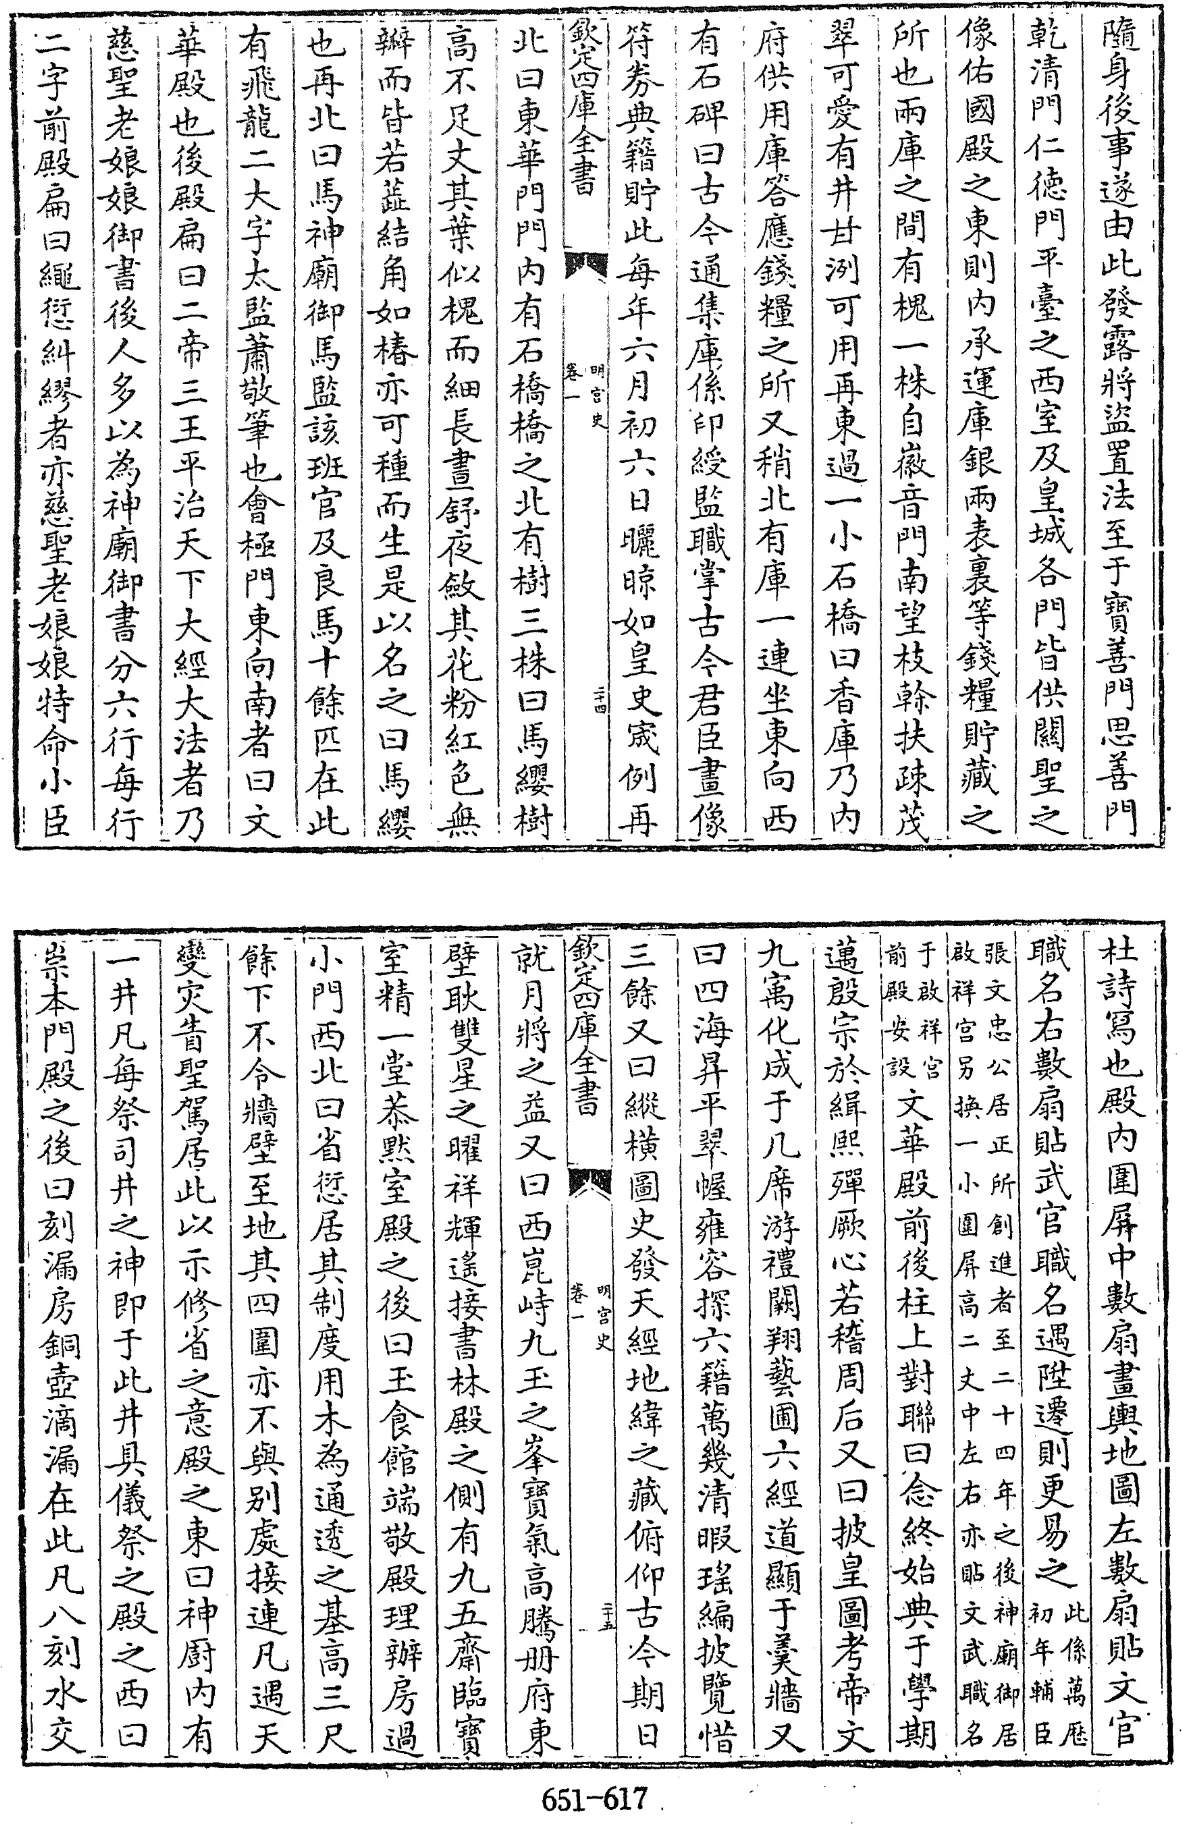 隨身後事遂由此發露將盜置法至于寶善門思善門
乾清門仁德門平臺之西室及皇城各門皆供關聖之
像佑國殿之東則内承運庫銀兩表裏等錢糧貯藏之
所也兩庫之間有槐一株自徽音門南望枝榦扶疎茂
翠可愛有井甘洌可用再東過一小石橋曰香庫乃内
府供用庫答應錢糧之所又稍北有庫一連坐東向西
有石碑曰古今通集庫係印綬監職掌古今君臣畫像
符券典籍貯此每年六月初六日曬晾如皇史宬例再
欽定四庫全書
明宮史
卷一
二十四
北曰東華門門内有石橋橋之北有樹三株曰馬纓樹
高不足丈其葉似槐而細長晝舒夜斂其花粉紅色無
瓣而皆若蕋結角如椿亦可種而生是以名之曰馬纓
也再北曰馬神廟御馬監該班官及良馬十餘匹在此
有飛龍二大字太監蕭敬筆也會極門東向南者曰文
華殿也後殿扁曰二帝三王平治天下大經大法者乃
慈聖老娘娘御書後人多以為神廟御書分六行每行
二字前殿扁曰繩愆糾繆者亦慈聖老娘娘特命小臣
杜詩寫也殿内圍屏中數扇畫輿地圖左數扇貼文官
職名右數扇貼武官職名遇陞遷則更易之此係萬歷
初年輔臣
張文忠公居正所創進者至二十四年之後神廟御居
啟祥宮另換一小圍屏高二丈中左右亦貼文武職名
于啟祥宮
前殿安設文華殿前後柱上對聯曰念終始典于學期
邁殷宗於緝熙殫厥心若稽周后又曰披皇圖考帝文
九寓化成于几席游禮闕翔藝圃六經道顯于羹牆又
曰四海昇平翠幄雍容探六籍萬幾清暇瑤編披覽惜
三餘又曰縱橫圖史發天經地緯之藏俯仰古今期日
欽定四庫全書
明宮史
卷一
二十五
就月將之益又曰西崑峙九玉之峯寶氣高騰册府東
壁耿雙星之曜祥輝遙接書林殿之側有九五齋臨寶
室精一堂恭默室殿之後曰玉食館端敬殿理辦房過
小門西北曰省愆居其制度用木為通透之基高三尺
餘下不令牆壁至地其四圍亦不與别處接連凡遇天
變灾眚聖駕居此以示修省之意殿之東曰神厨内有
一井凡每祭司井之神即于此井具儀祭之殿之西曰
崇本門殿之後曰刻漏房銅壺滴漏在此凡八刻水交
651-617